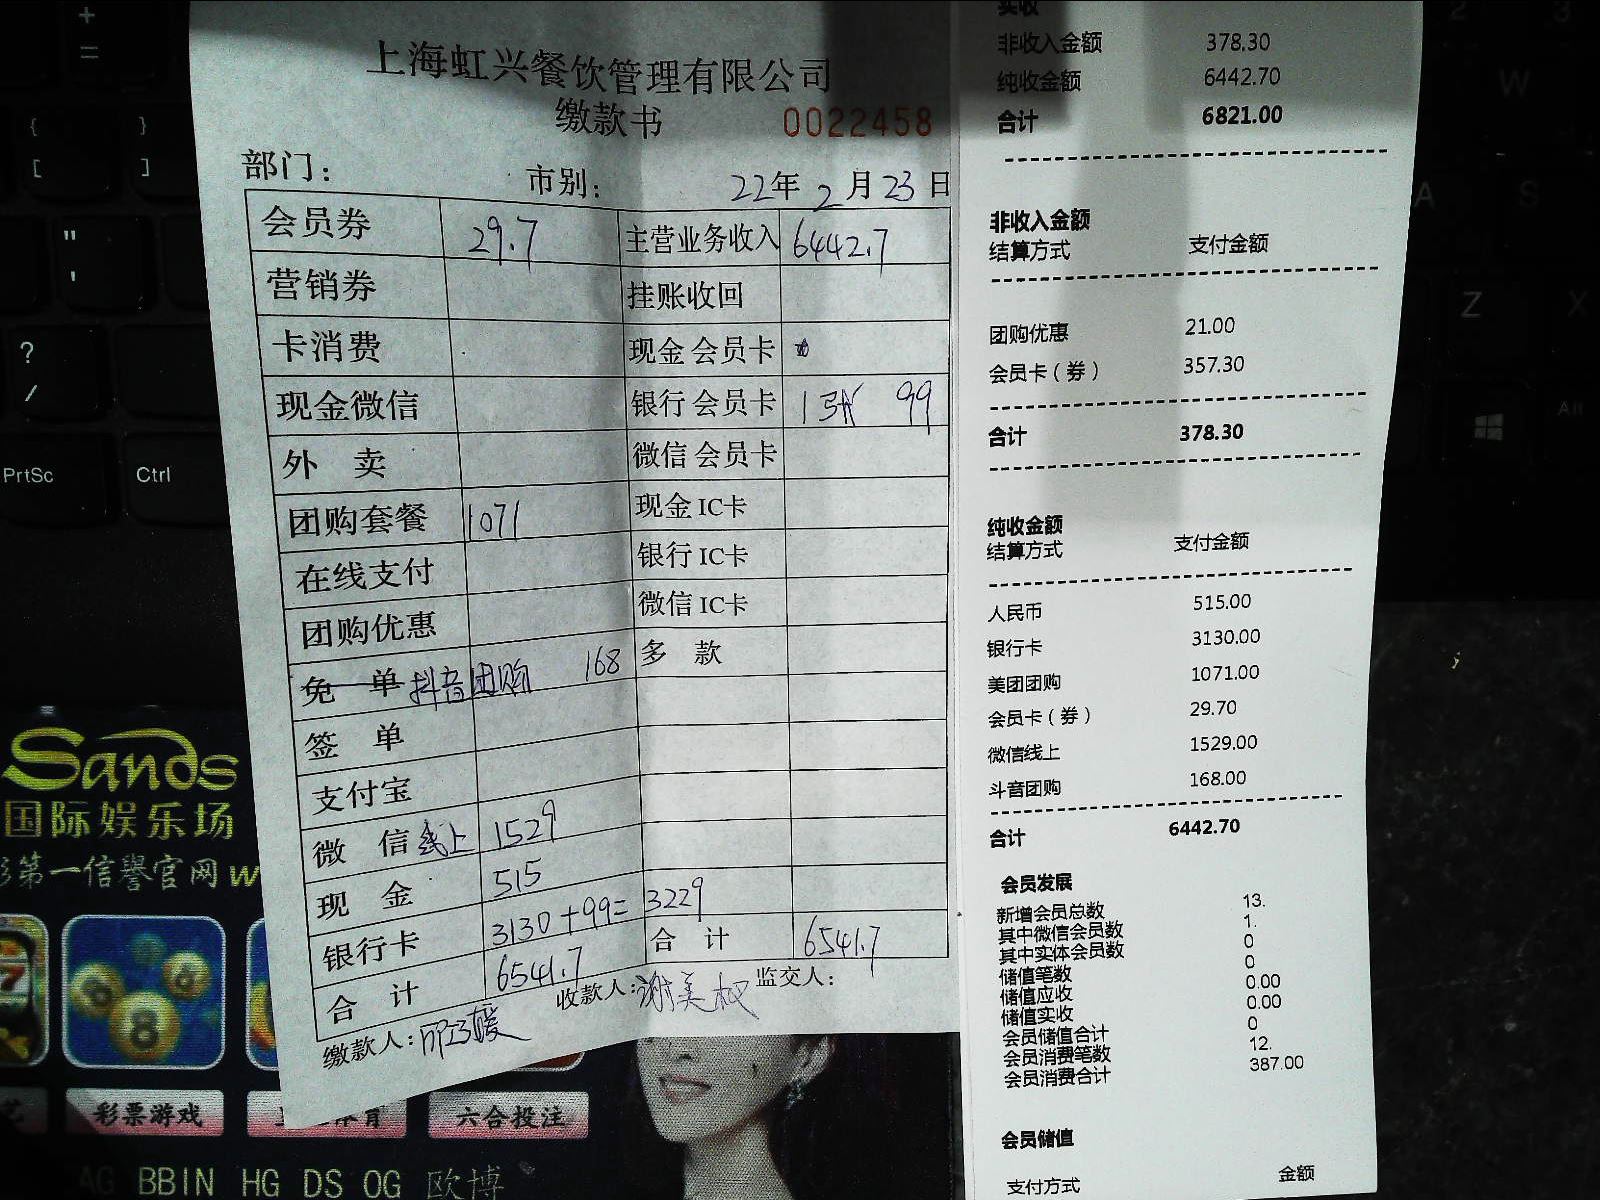 上海虹兴餐饮管理有限公司
缴款书 0022458
部门: 市别: 22年2月23日
会员券 29.7 主营业务收入 6442.7
营销券 挂账收回
卡消费 现金会员卡
现金微信 银行会员卡 1张 99
外 卖 微信会员卡
团购套餐 1071 现金IC卡
在线支付 银行IC卡
团购优惠 微信IC卡
免 单 抖音团购 168 多 款
签 单
支付宝
微 信 线上 1529
现 金 515
银行卡 3130+99= 3229
合 计 6541.7 合 计 6541.7
缴款人: 收款人: 监交人:
实收
非收入金额 378.30
纯收金额 6442.70
合计 6821.00
非收入金额
结算方式 支付金额
团购优惠 21.00
会员卡(券) 357.30
合计 378.30
纯收金额
结算方式 支付金额
人民币 515.00
银行卡 3130.00
美团团购 1071.00
会员卡(券) 29.70
微信线上 1529.00
斗音团购 168.00
合计 6442.70
会员发展
新增会员总数 13.
其中微信会员数 1.
其中实体会员数 0
储值笔数 0
储值应收 0.00
储值实收 0.00
会员储值合计 0
会员消费笔数 12.
会员消费合计 387.00
会员储值
支付方式 金额
+
=
{ }
[ ]
"
'
?
/
PrtSc Ctrl
2 3
W
A S
Z X
Alt
Sands
国际娱乐场
第一信誉官网w
8
彩票游戏 体育 六合投注
AG BBIN HG DS OG 欧博